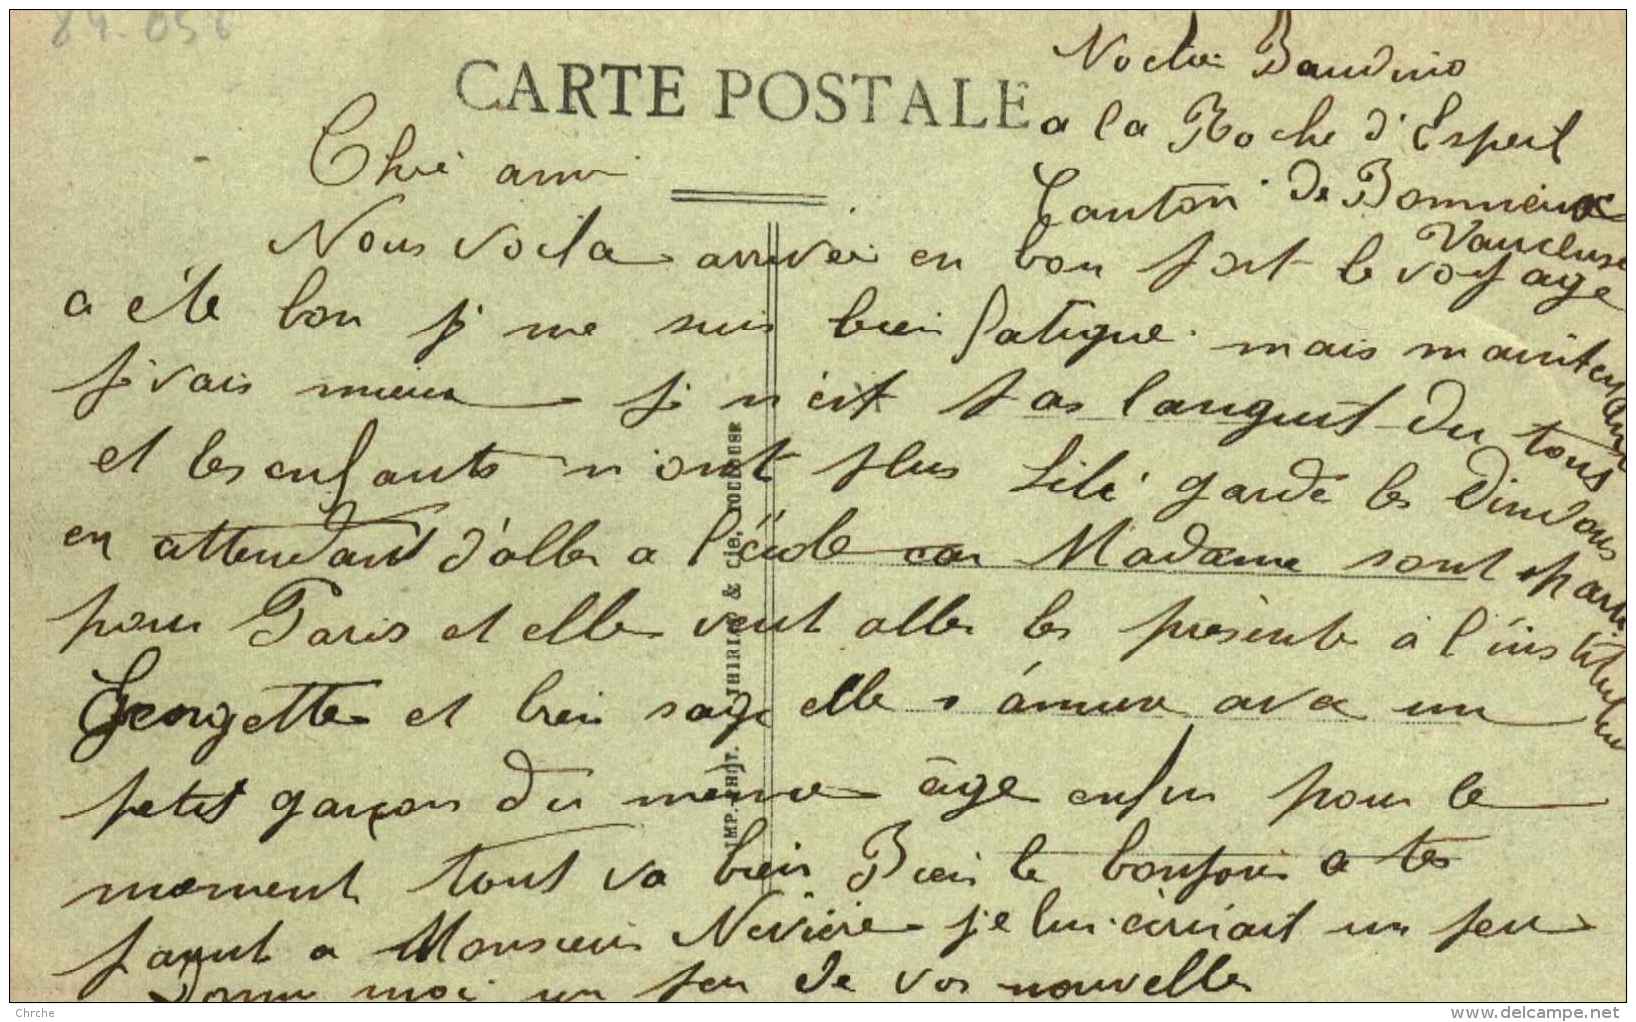 84-056
CARTE POSTALE
Baudino
a la Roche d'Espeil
Canton de Bonnieux
Vaucluse
Cher ami
Nous voila arrivée en bon port le voyage
a été bon je me suis bien fatigue mais maintenant
je vais mieux je n'est pas languit du tous
et les enfants n'ont plus Lili garde les dindons
en attendant d'aller a l'école car Madame sont parti
pour Paris et elle veut aller les présente à l'instituteur
Georgette et bien sage elle s'amuse avec un
petit garçon du même âge enfin pour le
moment tout va bien Bien le bonjour a tes
parent a Monsieur je lui écrirait un peu
Donne moi un peu de vos nouvelle
IMP. PHOT. THIRIAT & CIE.
Chrche
www.delcampe.net